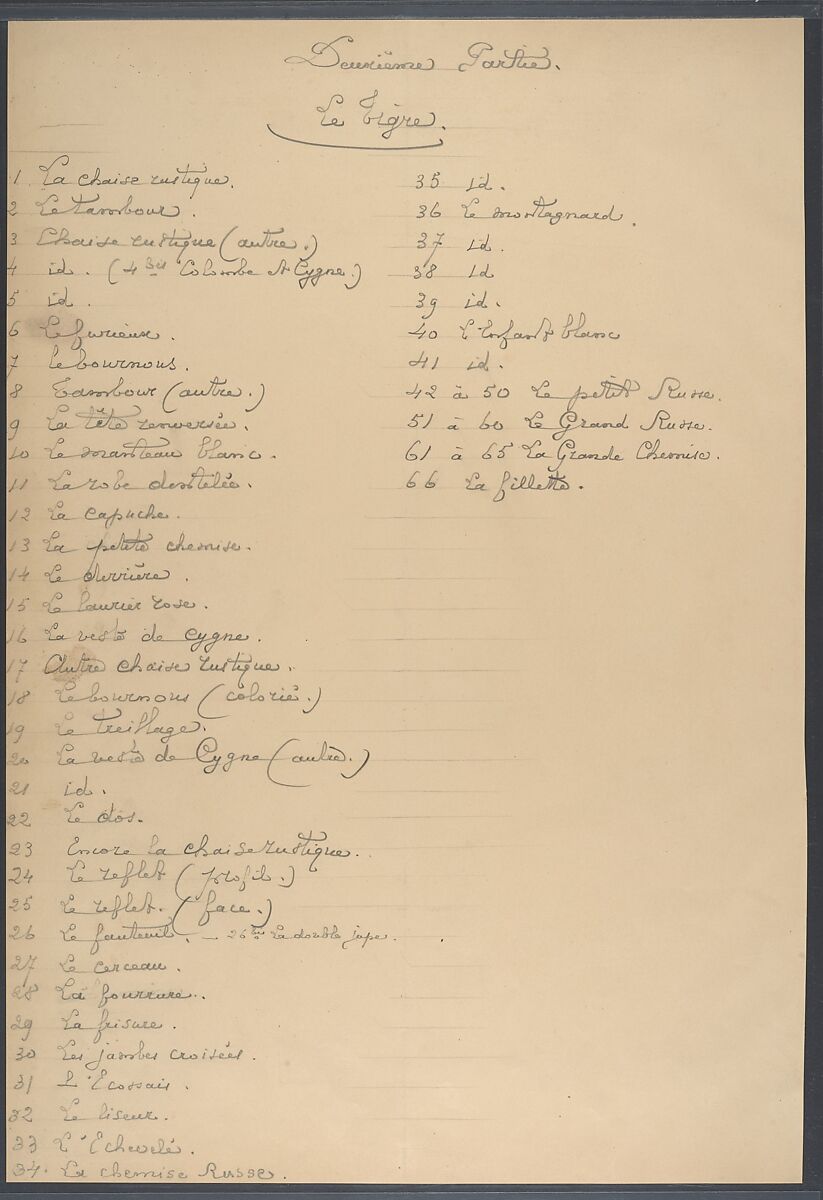 Deuxième Partie.
Le Tigre.
1 La chaise rustique.
2 Le tambour.
3 Chaise rustique (autre.)
4 id. (4 bis Colombe et Cygne.)
5 id.
6 Le furieux.
7 le bournous.
8 Tambour (autre.)
9 La tête renversée.
10 Le manteau blanc.
11 La robe dentelée.
12 La capuche.
13 La petite chemise.
14 Le derrière.
15 Le laurier rose.
16 La veste de cygne.
17 Autre chaise rustique.
18 Le bournous (colorié.)
19 Le treillage.
20 La veste de Cygne (autre.)
21 id.
22 Le dos.
23 Encore la chaise rustique.
24 Le reflet (profil.)
25 Le reflet. (face.)
26 Le fauteuil. — 26 bis La double jupe.
27 Le cerceau.
28 La fourrure.
29 La frisure.
30 Les jambes croisées.
31 L'Ecossais.
32 Le liseur.
33 L'Echevelé.
34. La chemise Russe.
35 id.
36 Le montagnard.
37 id.
38 id
39 id.
40 L'Enfant blanc
41 id.
42 à 50 Le petit Russe.
51 à 60 Le Grand Russe.
61 à 65 La Grande Chemise.
66 La fillette.